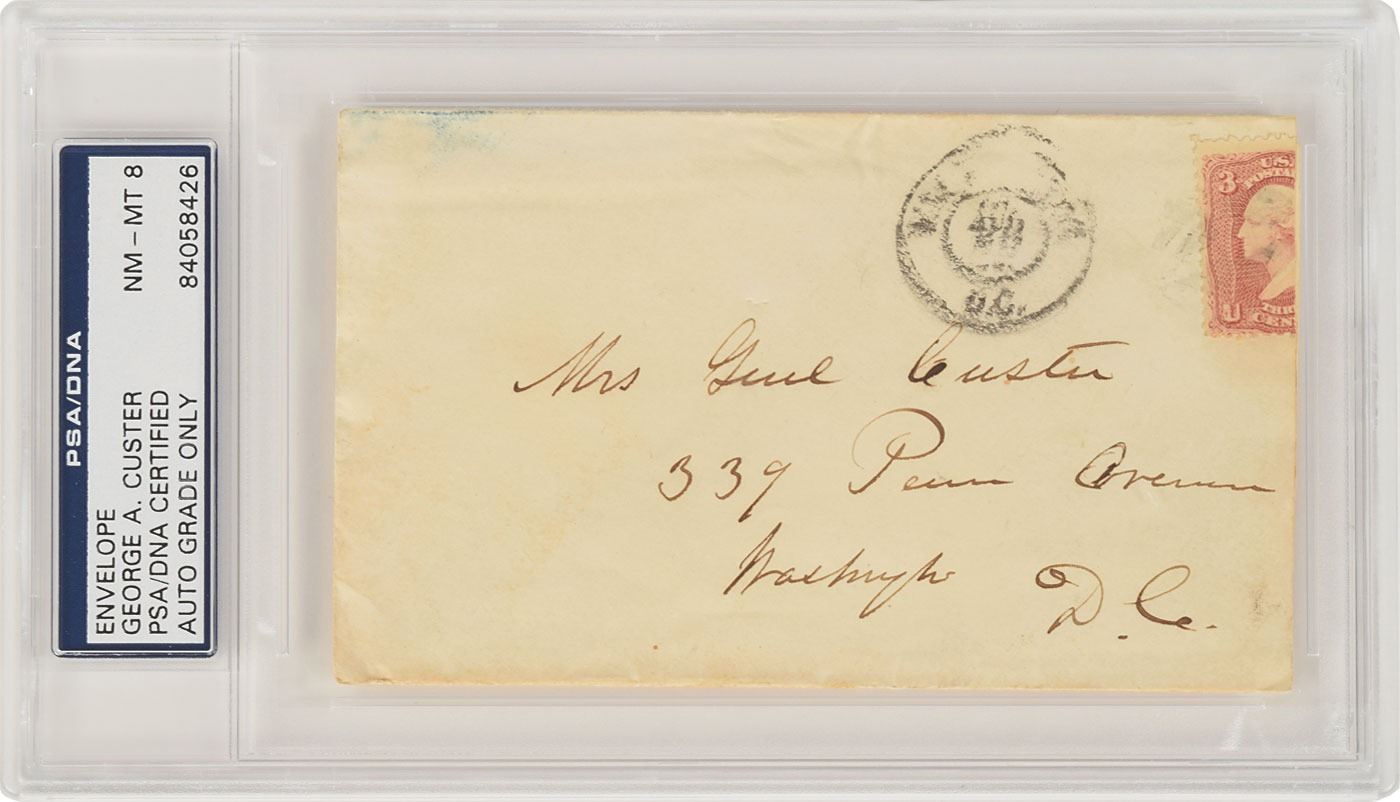 PSA/DNA
ENVELOPE
GEORGE A. CUSTER
PSA/DNA CERTIFIED
AUTO GRADE ONLY
NM – MT 8
84058426
D.C.
3
U.S.
POSTA
U
THR
CEN
Mrs Genl Custer
339 Penn Avenue
Washington D.C.